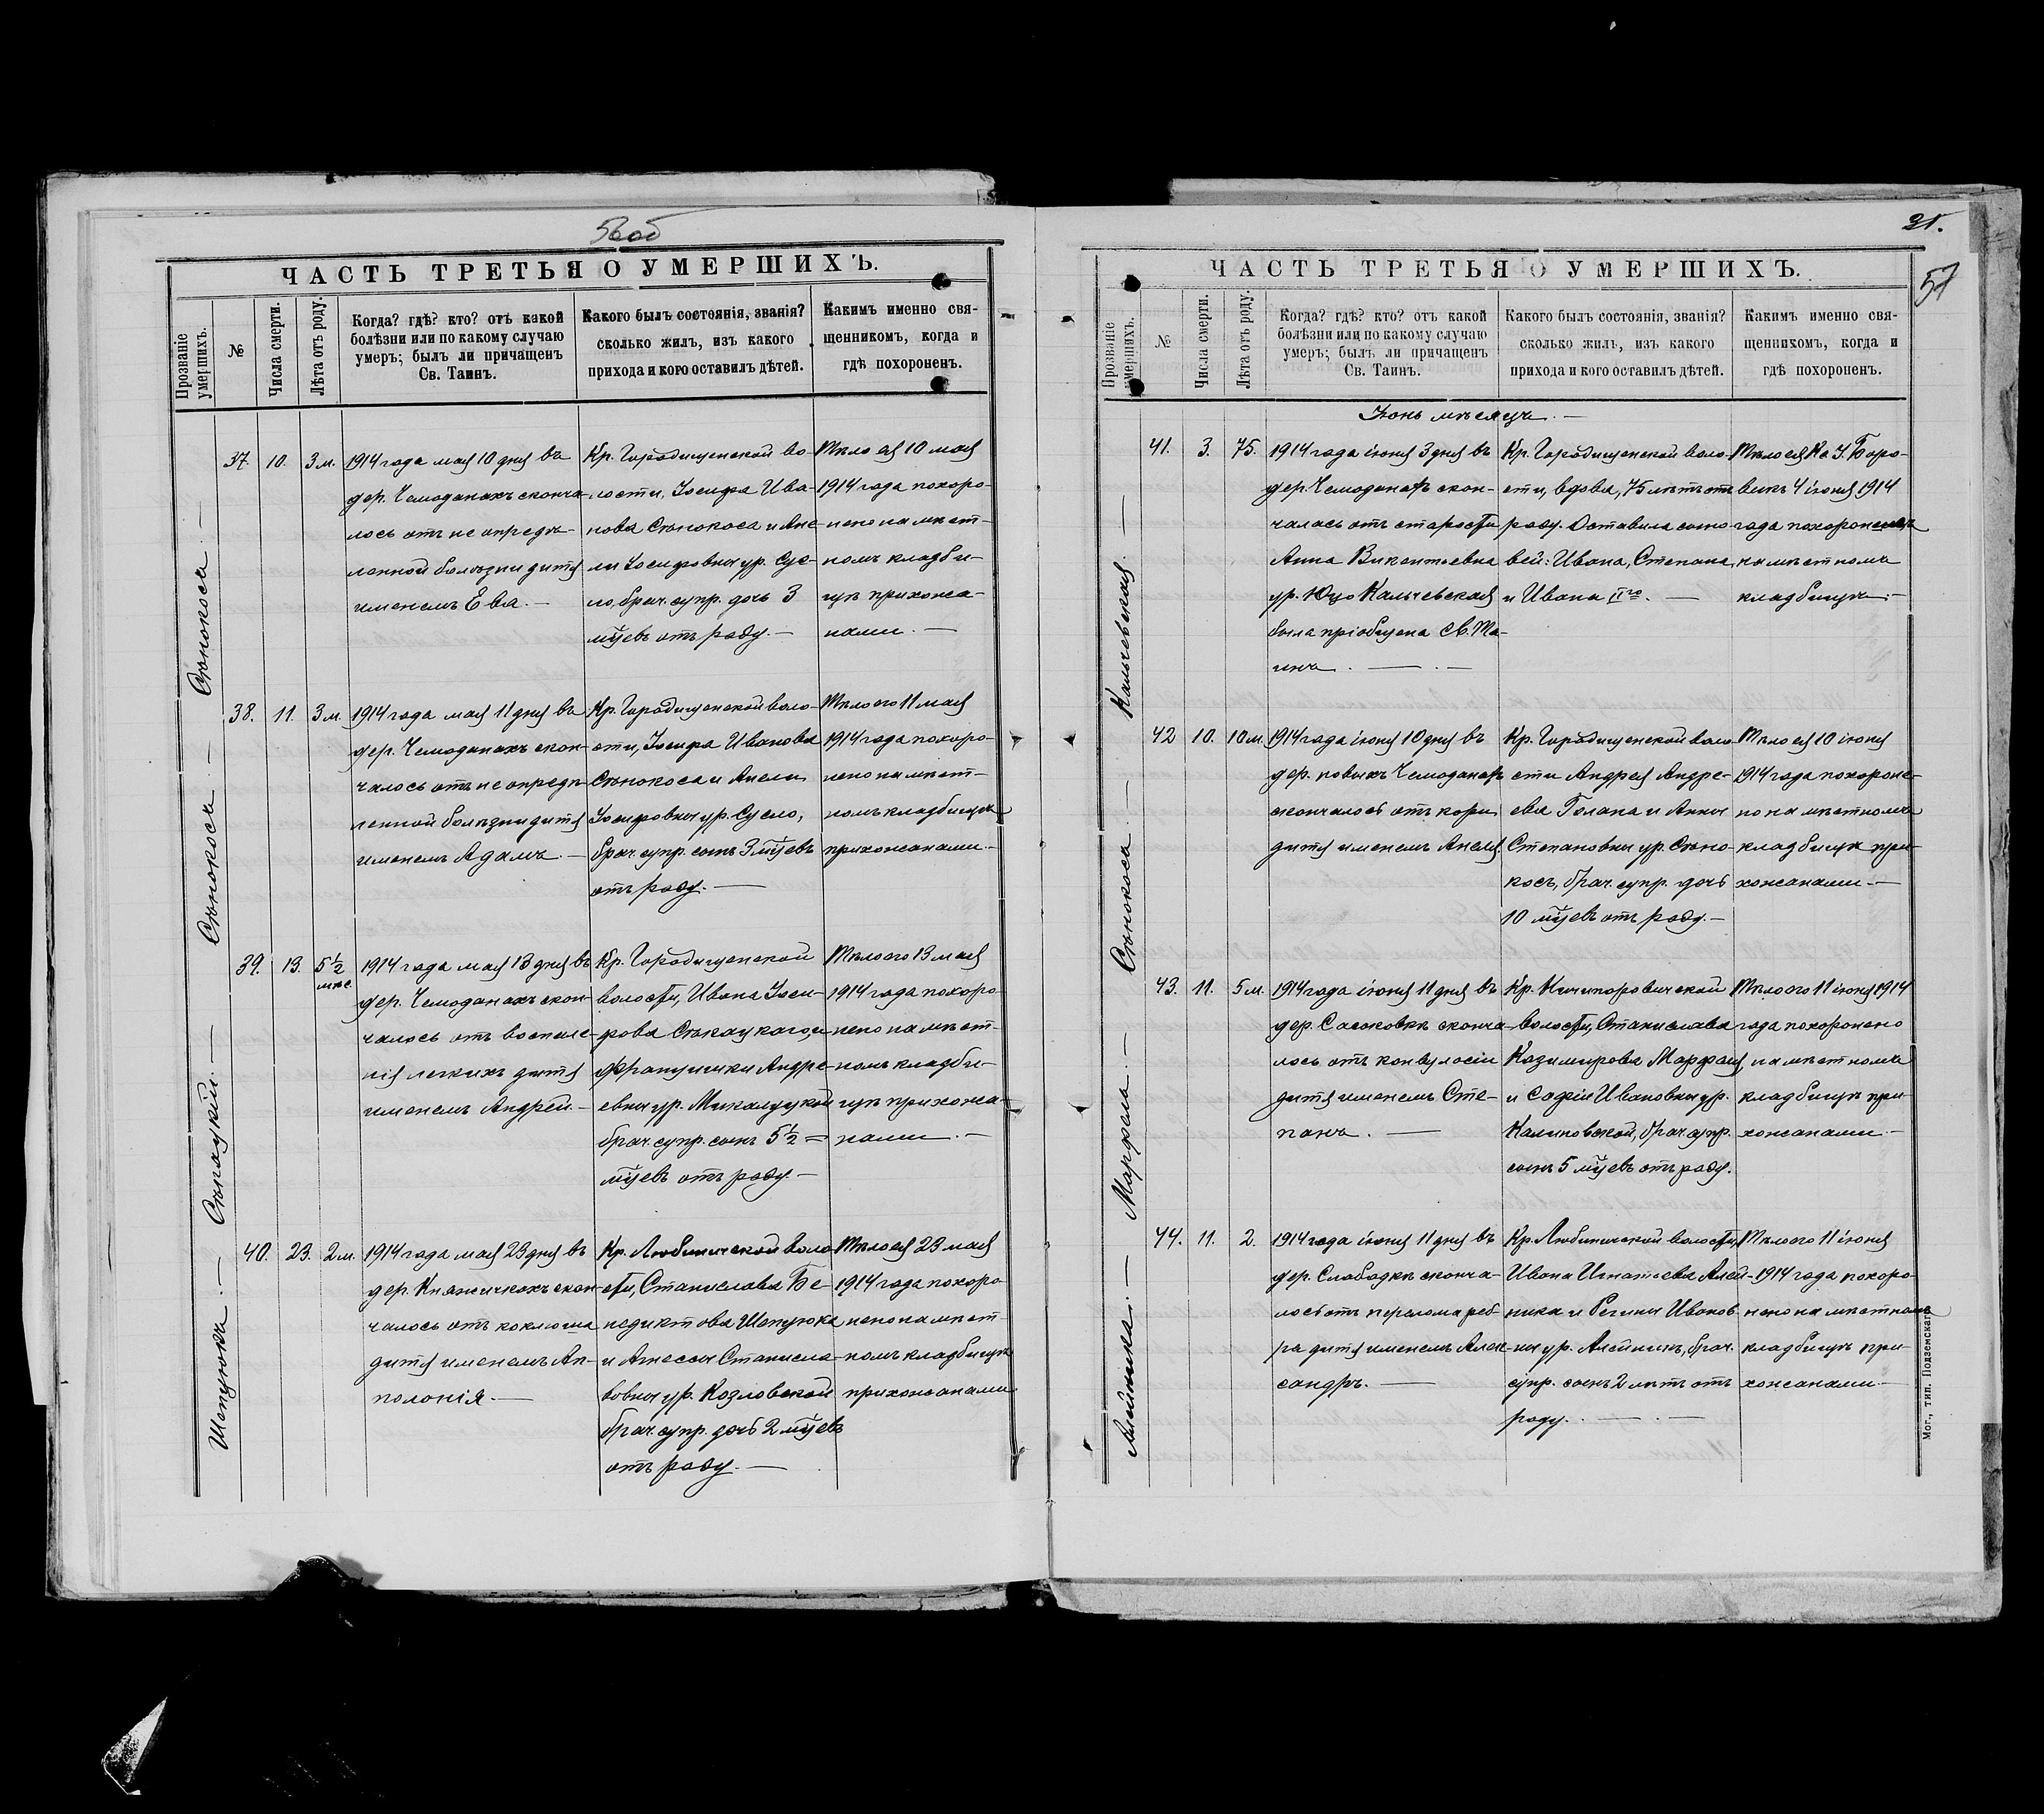 56об
ЧАСТЬ ТРЕТЬЯ О УМЕРШИХЪ.
Прозваніе умершихъ.
№
Числа смерти.
Лѣта отъ роду.
Когда? гдѣ? кто? отъ какой
болѣзни или по какому случаю
умеръ; былъ ли причащенъ
Св. Таинъ.
Какого былъ состоянія, званія?
сколько жилъ, изъ какого
прихода и кого оставилъ дѣтей.
Каким именно свя-
щенникомъ, когда и
гдѣ похороненъ.
Сѣнокоса. —
37. 10. 3 м.
1914 года мая 10 дня въ
дер. Чемоданахъ сконча-
лось отъ не опредѣ-
ленной болѣзни дитя
именемъ Ева. —
Кр. Городищенской во-
лости, Іосифа Ива-
нова Сѣнокоса и Ане-
ли Іосифовны ур. Сус-
ло, брач. супр. дочь 3
мцевъ отъ роду. —
Тѣло ея 10 мая
1914 года похоро-
нено на мѣст-
номъ кладби-
щѣ прихожа-
нами. —
Сѣнокоса —
38. 11. 3 м.
1914 года мая 11 дня въ
дер. Чемоданахъ скон-
чалось отъ не опредѣ-
ленной болѣзни дитя
именемъ Адамъ. —
Кр. Городищенской воло-
сти, Іосифа Иванова
Сѣнокоса и Анели
Іосифовны ур. Сусло,
брач. супр. сынъ 3 мцевъ
отъ роду. —
Тѣло его 11 мая
1914 года похоро-
нено на мѣст-
номъ кладбищѣ
прихожанами. —
39. 13. 5½ мѣс.
1914 года мая 13 дня въ
дер. Чемоданахъ скон-
чалось отъ воспале-
нія легкихъ дитя
именемъ Андрей. —
Кр. Городищенской
волости, Ивана Іоси-
фова и
Францишки Андре-
евны ур.
брач. супр. сынъ 5½ =
мцевъ отъ роду. —
Тѣло его 13 мая
1914 года похоро-
нено на мѣст-
номъ кладби-
щѣ прихожа-
нами. —
Шепунока. —
40. 23. 2 м.
1914 года мая 23 дня въ
дер. Княжичкахъ скон-
чалось отъ коклюша
дитя именемъ Ап-
полонія. —
Кр. Любиничской воло-
сти, Станислава Бе-
недиктова
и Агнессы Станисла-
вовны ур. Козловской
брач. супр. дочь 2 мцевъ
отъ роду. —
Тѣло ея 23 мая
1914 года похоро-
нено на мѣст-
номъ кладбищѣ
прихожанами.
31.
57
ЧАСТЬ ТРЕТЬЯ О УМЕРШИХЪ.
Прозваніе умершихъ.
№
Числа смерти.
Лѣта отъ роду.
Когда? гдѣ? кто? отъ какой
болѣзни или по какому случаю
умеръ; былъ ли причащенъ
Св. Таинъ.
Какого былъ состоянія, званія?
сколько жилъ, изъ какого
прихода и кого оставилъ дѣтей.
Каким именно свя-
щенникомъ, когда и
гдѣ похороненъ.
Іюнь мѣсяцъ. —
Кальчевская. —
41. 3. 75.
1914 года іюня 3 дня въ
дер. Чемоданахъ скон-
чалась отъ старости
Анна Викентьевна
ур. Юцо Кальчевская
была пріобщена Св. Та-
инъ. —
Кр. Городищенской воло-
сти, вдова, 75 лѣтъ отъ
роду. Оставила сыно-
вей: Ивана, Степана,
и Ивана IIго. —
Тѣло ея Кс. І. Боро-
викъ 4 іюня 1914
года похоронено
на мѣстномъ
кладбищѣ. —
Сѣнокоса —
42 10. 10 м.
1914 года іюня 10 дня въ
дер. новыхъ Чемоданахъ
скончалось отъ кори
дитя именемъ Анеля.
Кр. Городищенской воло-
сти Андрея Андре-
ева Голана и Анны
Степановны ур. Сѣно-
косъ, брач. супр. дочь
10 мцевъ отъ роду. —
Тѣло ея 10 іюня
1914 года похороне-
но на мѣстномъ
кладбищѣ при-
хожанами. —
Марфеля. —
43. 11. 5 м.
1914 года іюня 11 дня въ
дер. Сасоновкѣ сконча-
лось отъ конвульсіи
дитя именемъ Сте-
панъ. —
Кр. Ничипоровичской
волости, Станислава
Казимирова Марфеля,
и Софіи Ивановны ур.
Калиновской, брач. супр.
сынъ 5 мцевъ отъ роду.
Тѣло его 11 іюня 1914
года похоронено
на мѣстномъ
кладбищѣ при-
хожанами. —
Алейника. —
44. 11. 2.
1914 года іюня 11 дня въ
дер. Слободкѣ сконча-
лось отъ перелома реб-
ра дитя именемъ Алек-
сандръ. —
Кр. Любиничской волости,
Ивана Игнатьева Алей-
ника и Регины Иванов-
ны ур. Алейникъ, брач.
супр. сынъ 2 лѣтъ отъ
роду. —
Тѣло его 11 іюня
1914 года похоро-
нено на мѣстномъ
кладбищѣ при-
хожанами. —
Мог., тип. Подземскаго